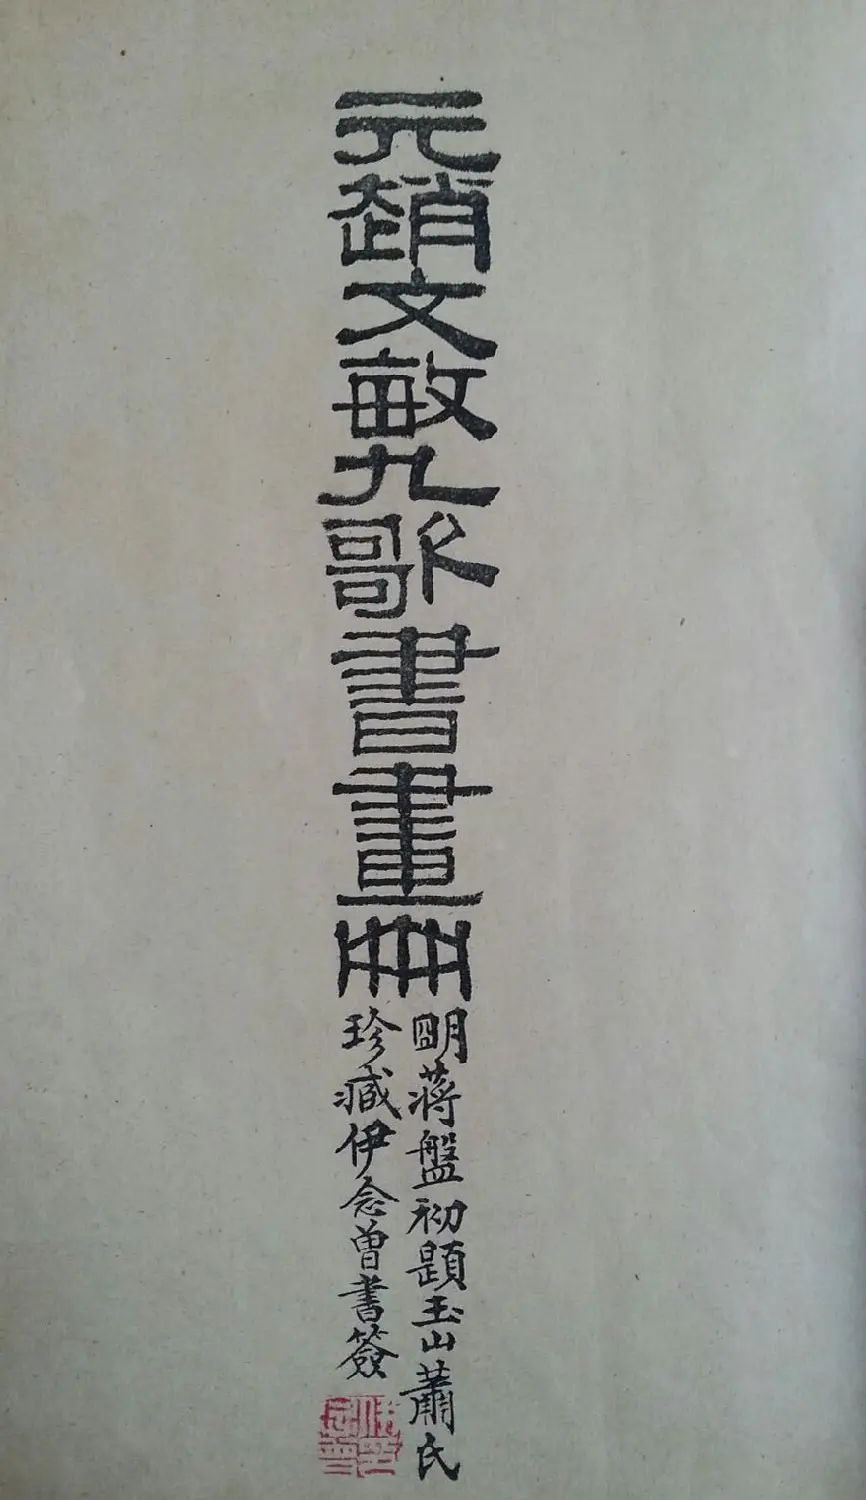 元趙文敏九歌書畫冊
明蔣盤初題玉山蕭氏
珍臧伊念曾書簽